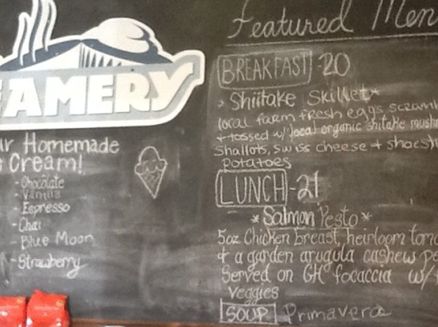 EAMERY
ur Homemade
Cream!
- Chocolate
- Vanilla
- Espresso
- Chai
- Blue Moon
- Strawberry
Featured Men
BREAKFAST - 20
Shiitake Skillet*
local farm fresh eggs scram
+ tossed w/ local organic shitake mush
shallots, swiss cheese + shoest
potatoes
LUNCH - 21
* Salmon Pesto *
5oz Chicken breast, heirloom tom
+ a garden arugula cashew pe
Served on GH focaccia w/
veggies
SOUP Primavera